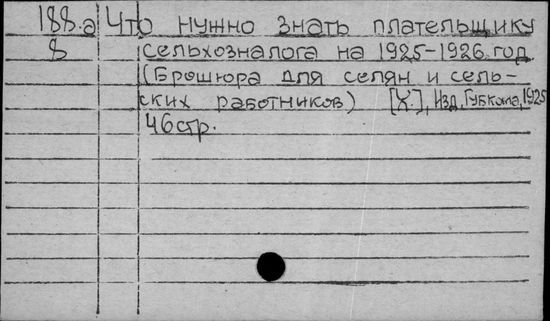 188.а Что нужно знать плательщику
8 сельхозналога на 1925-1926 год
(Брошюра для селян и сель-
ских работников) [Х.], Изд. Губкома, 1925
46 стр.